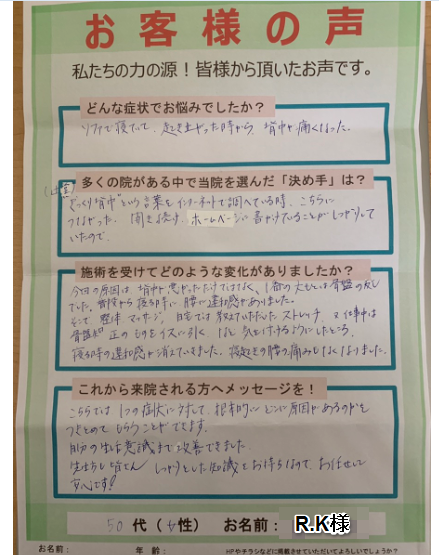 お客様の声
私たちの力の源！皆様から頂いたお声です。
どんな症状でお悩みでしたか？
ソファで寝ていて、起き上がった時から、背中が痛くなった。
多くの院がある中で当院を選んだ「決め手」は？
"ぎっくり背中"という言葉をインターネットで調べている時、こちらに
つながった。 ホームページに書かれていることがしっかりして
いたので。
施術を受けてどのような変化がありましたか？
今回の原因は背中が悪かっただけではなく、1番の大もとは骨盤の反り
でした。普段から寝る時に腰に違和感がありました。
そこで整体、マッサージ、自宅では教えていただいたストレッチ、又仕事中は
骨盤 正のものをイスに引くなど気を付けるようにしたところ、
寝る時の違和感が消えていきました。寝起きの腰の痛みもなくなりました。
これから来院される方へメッセージを！
こちらでは1つの症状に対して、根本的にどこに原因があるのかを
つきとめてもらうことができます。
自分の生活意識まで改善できました。
先生方も皆さん しっかりとした知識をお持ちなので、お任せして
安心です！
50代（女性） お名前： R.K様
お名前： 年齢： HPやチラシなどに掲載させていただいてよろしいでしょうか？